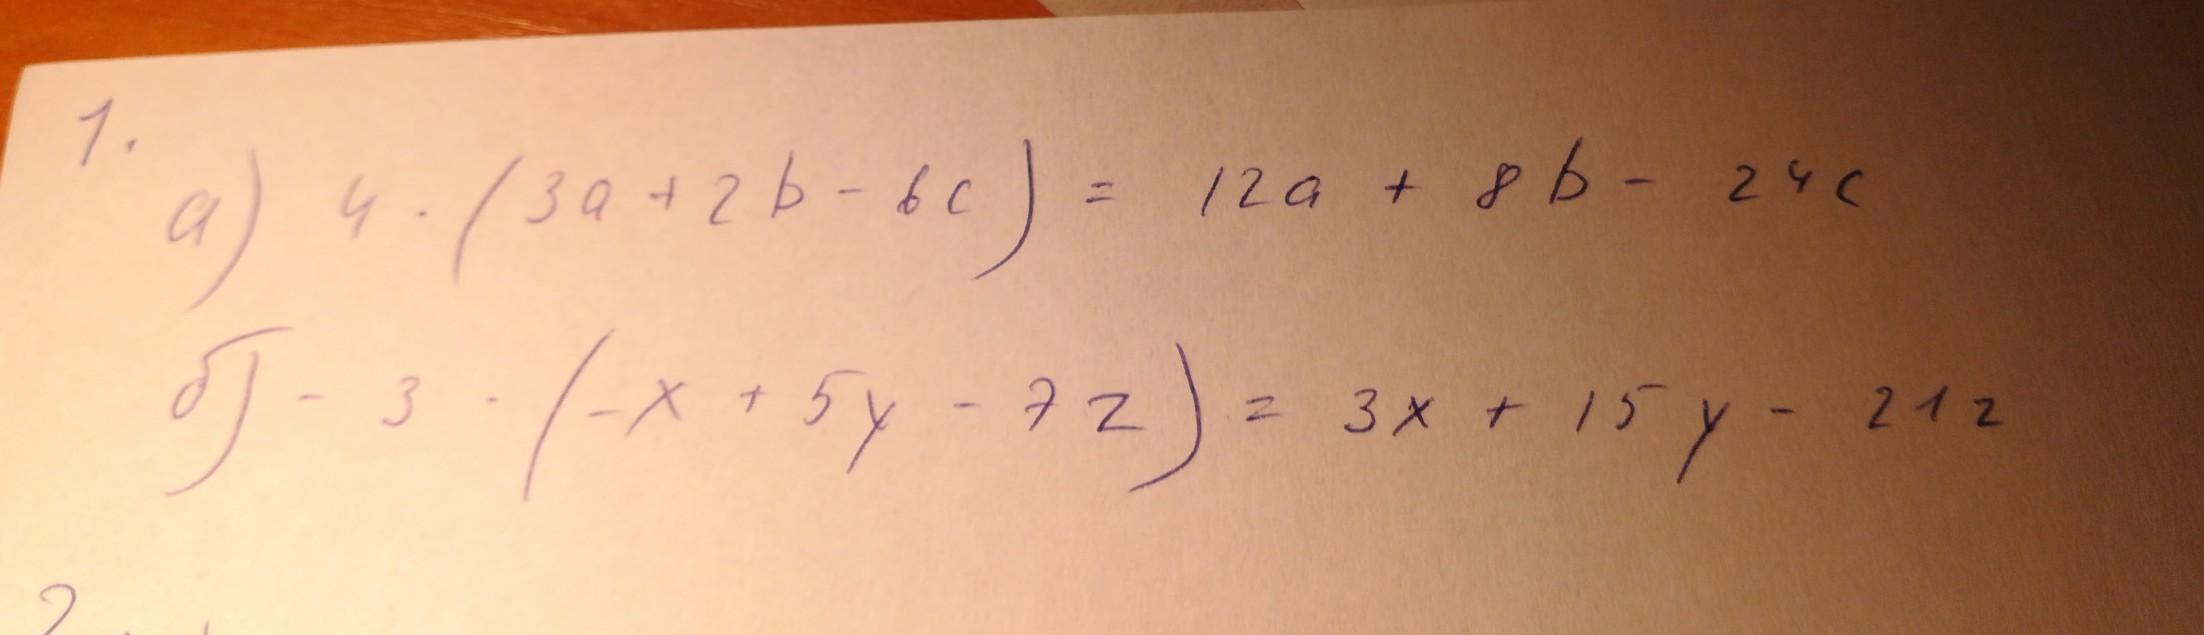 1.
а) 4 · (3a + 2b - 6c) = 12a + 8b - 24c
б) - 3 · (-x + 5y - 7z) = 3x + 15y - 21z
2